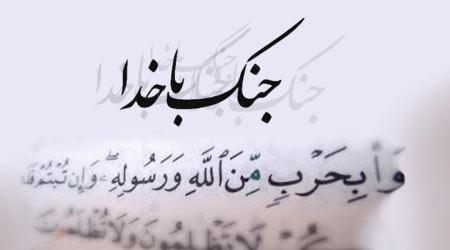 جنگ با خدا
وا۟ بِحَرْبٍ مِّنَ ٱللَّهِ وَرَسُولِهِۦ ۖ وَإِن تُبْتُمْ فَ
لَا تَظْلِمُونَ وَلَا تُظْلَمُونَ